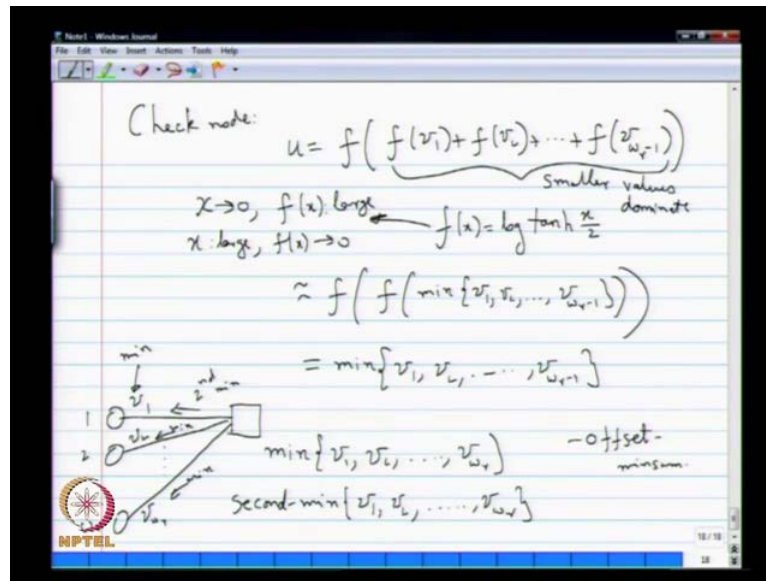 Note1 - Windows Journal
File Edit View Insert Actions Tools Help
Check node:
u = f( f(v₁) + f(v₂) + ... + f(v_{w_r-1}) )
smaller values dominate
x→0, f(x): large
f(x) = log tanh x/2
x: large, f(x)→0
≈ f( f( min{v₁, v₂, ..., v_{w_r-1}} ) )
= min{v₁, v₂, ..., v_{w_r-1}}
min
2nd min
1 v₁
2 v₂ min
min
v_{w_r}
min{v₁, v₂, ..., v_{w_r}}
-offset-
minsum.
second-min{v₁, v₂, ..., v_{w_r}}
NPTEL
18 / 18
18